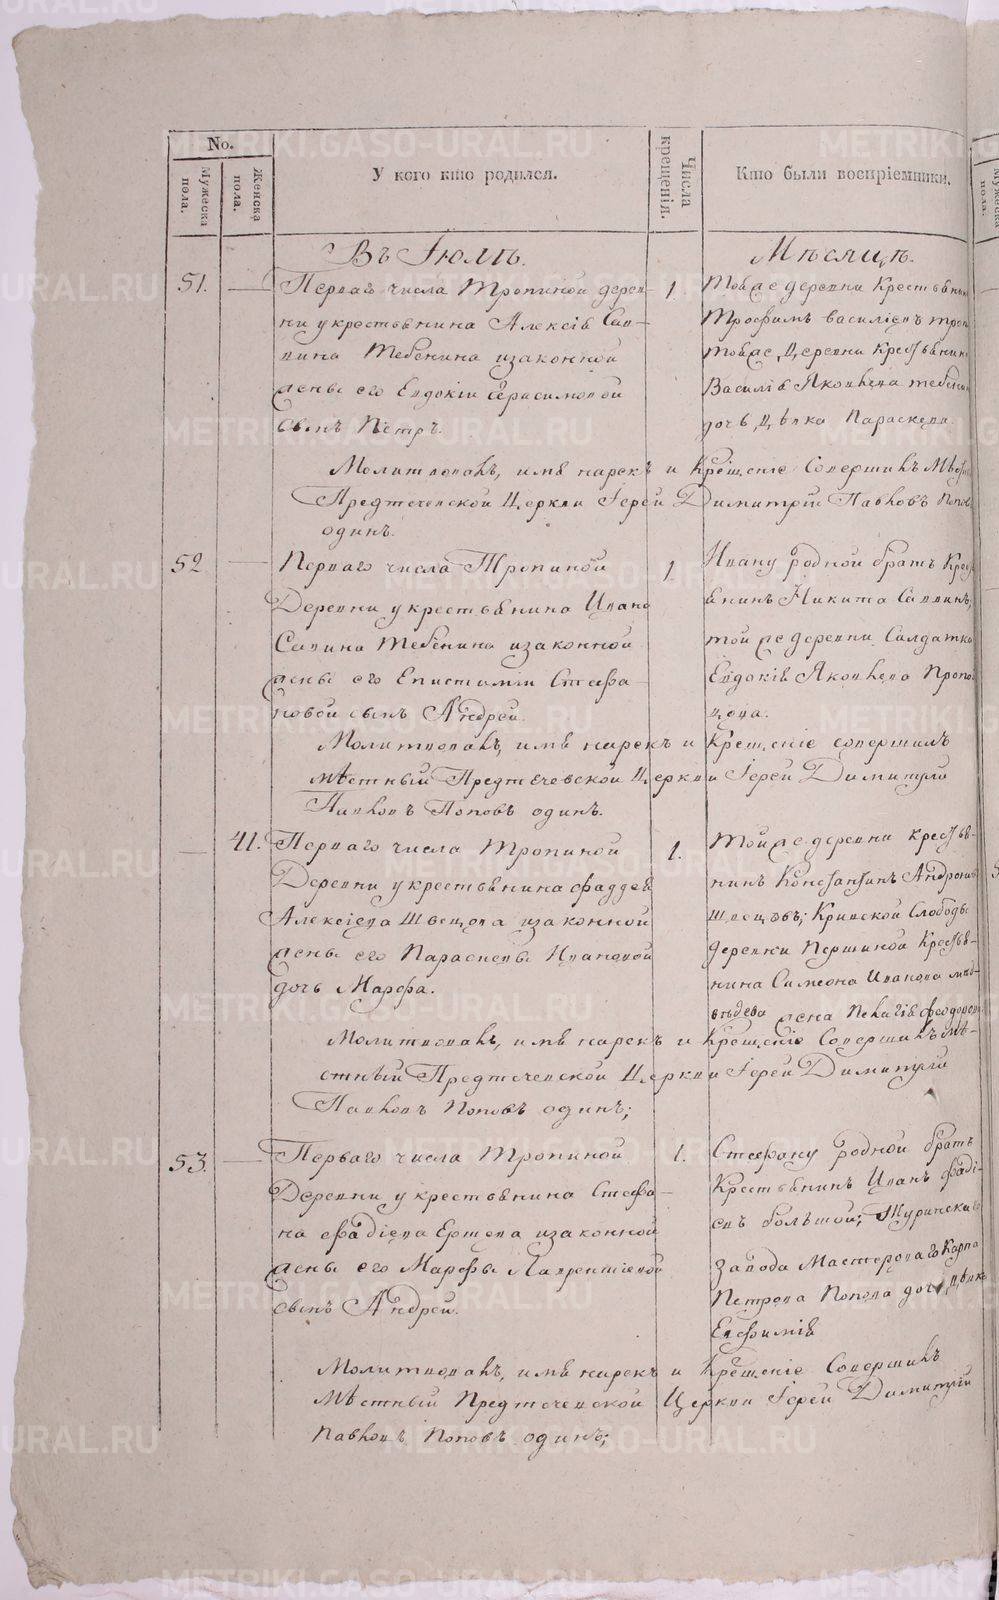 No.
Мужеска пола.
Женска пола.
У кого кто родился.
Числа крещенія.
Кто были воспріемники.
Въ Іюлѣ. Мѣсяцѣ.
51. 1.
Перваго числа Тропиной дерев-
ни у крестьянина Алексія Сав-
вина Тебенина изаконной
жены его Евдокіи Герасимовой
сынъ Пётръ.
Тойже деревни Крестьянин
Трофимъ василіевъ троп
тойже Деревни Крестьянин
Василія Яковлева тебенин
дочь Дѣвка Параскева.
Молитвовалъ, имя нарекъ и Крещеніе Совершилъ Мѣстн
Предтечевской Церкви Іерей Димитрій Павловъ Попов
одинъ.
52 1.
Перваго числа Тропиной
Деревни у крестьянина Ивана
Савина Тебенина изаконной
жены его Епистиміи Стефа-
новой сынъ Андрей.
Ивану родной братъ Крест
янинъ Никита Саввинъ,
той же деревни Салдатка
Евдокія Яковлева Пропо
цова.
Молитвовалъ, имя нарекъ и Крещеніе совершилъ
мѣстный Предтечевской Церкви Іерей Димитрій
Павловъ Поповъ одинъ.
41. 1.
Перваго числа Тропиной
Деревни у крестьянина Фаддея
Алексіева Швецова изаконной
жены его Параскевы Ивановой
дочь Марфа.
Тойже деревни крестья-
нинъ Константинъ Андронив
Швецовъ; Кривской Слободы
деревни Першиной Крестья-
нина Симеона Иванова мед-
вѣдева жена Пелагія феодоров
Молитвовалъ, имя нарекъ и Крещеніе Совершилъ мѣ-
стный Предтечевской Церкви Іерей Димитрій
Павловъ Поповъ одинъ;
53. 1.
Перваго числа Тропиной
Деревни у крестьянина Стефа-
на фадіева Ершова изаконной
жены его Марфы Лаврентіевой
сынъ Андрей.
Стефану родной братъ
Крестьянинъ Иванъ фаді-
евъ большой; Туринскаго
завода Мастероваго Карпа
Петрова Попова дочь, Дѣвка
Евфимія
Молитвовалъ, имя нарекъ и Крещеніе Совершилъ
Мѣстный Предтечевской Церкви Іерей Димитрій
Павловъ Поповъ одинъ;
METRIKI.GASO-URAL.RU